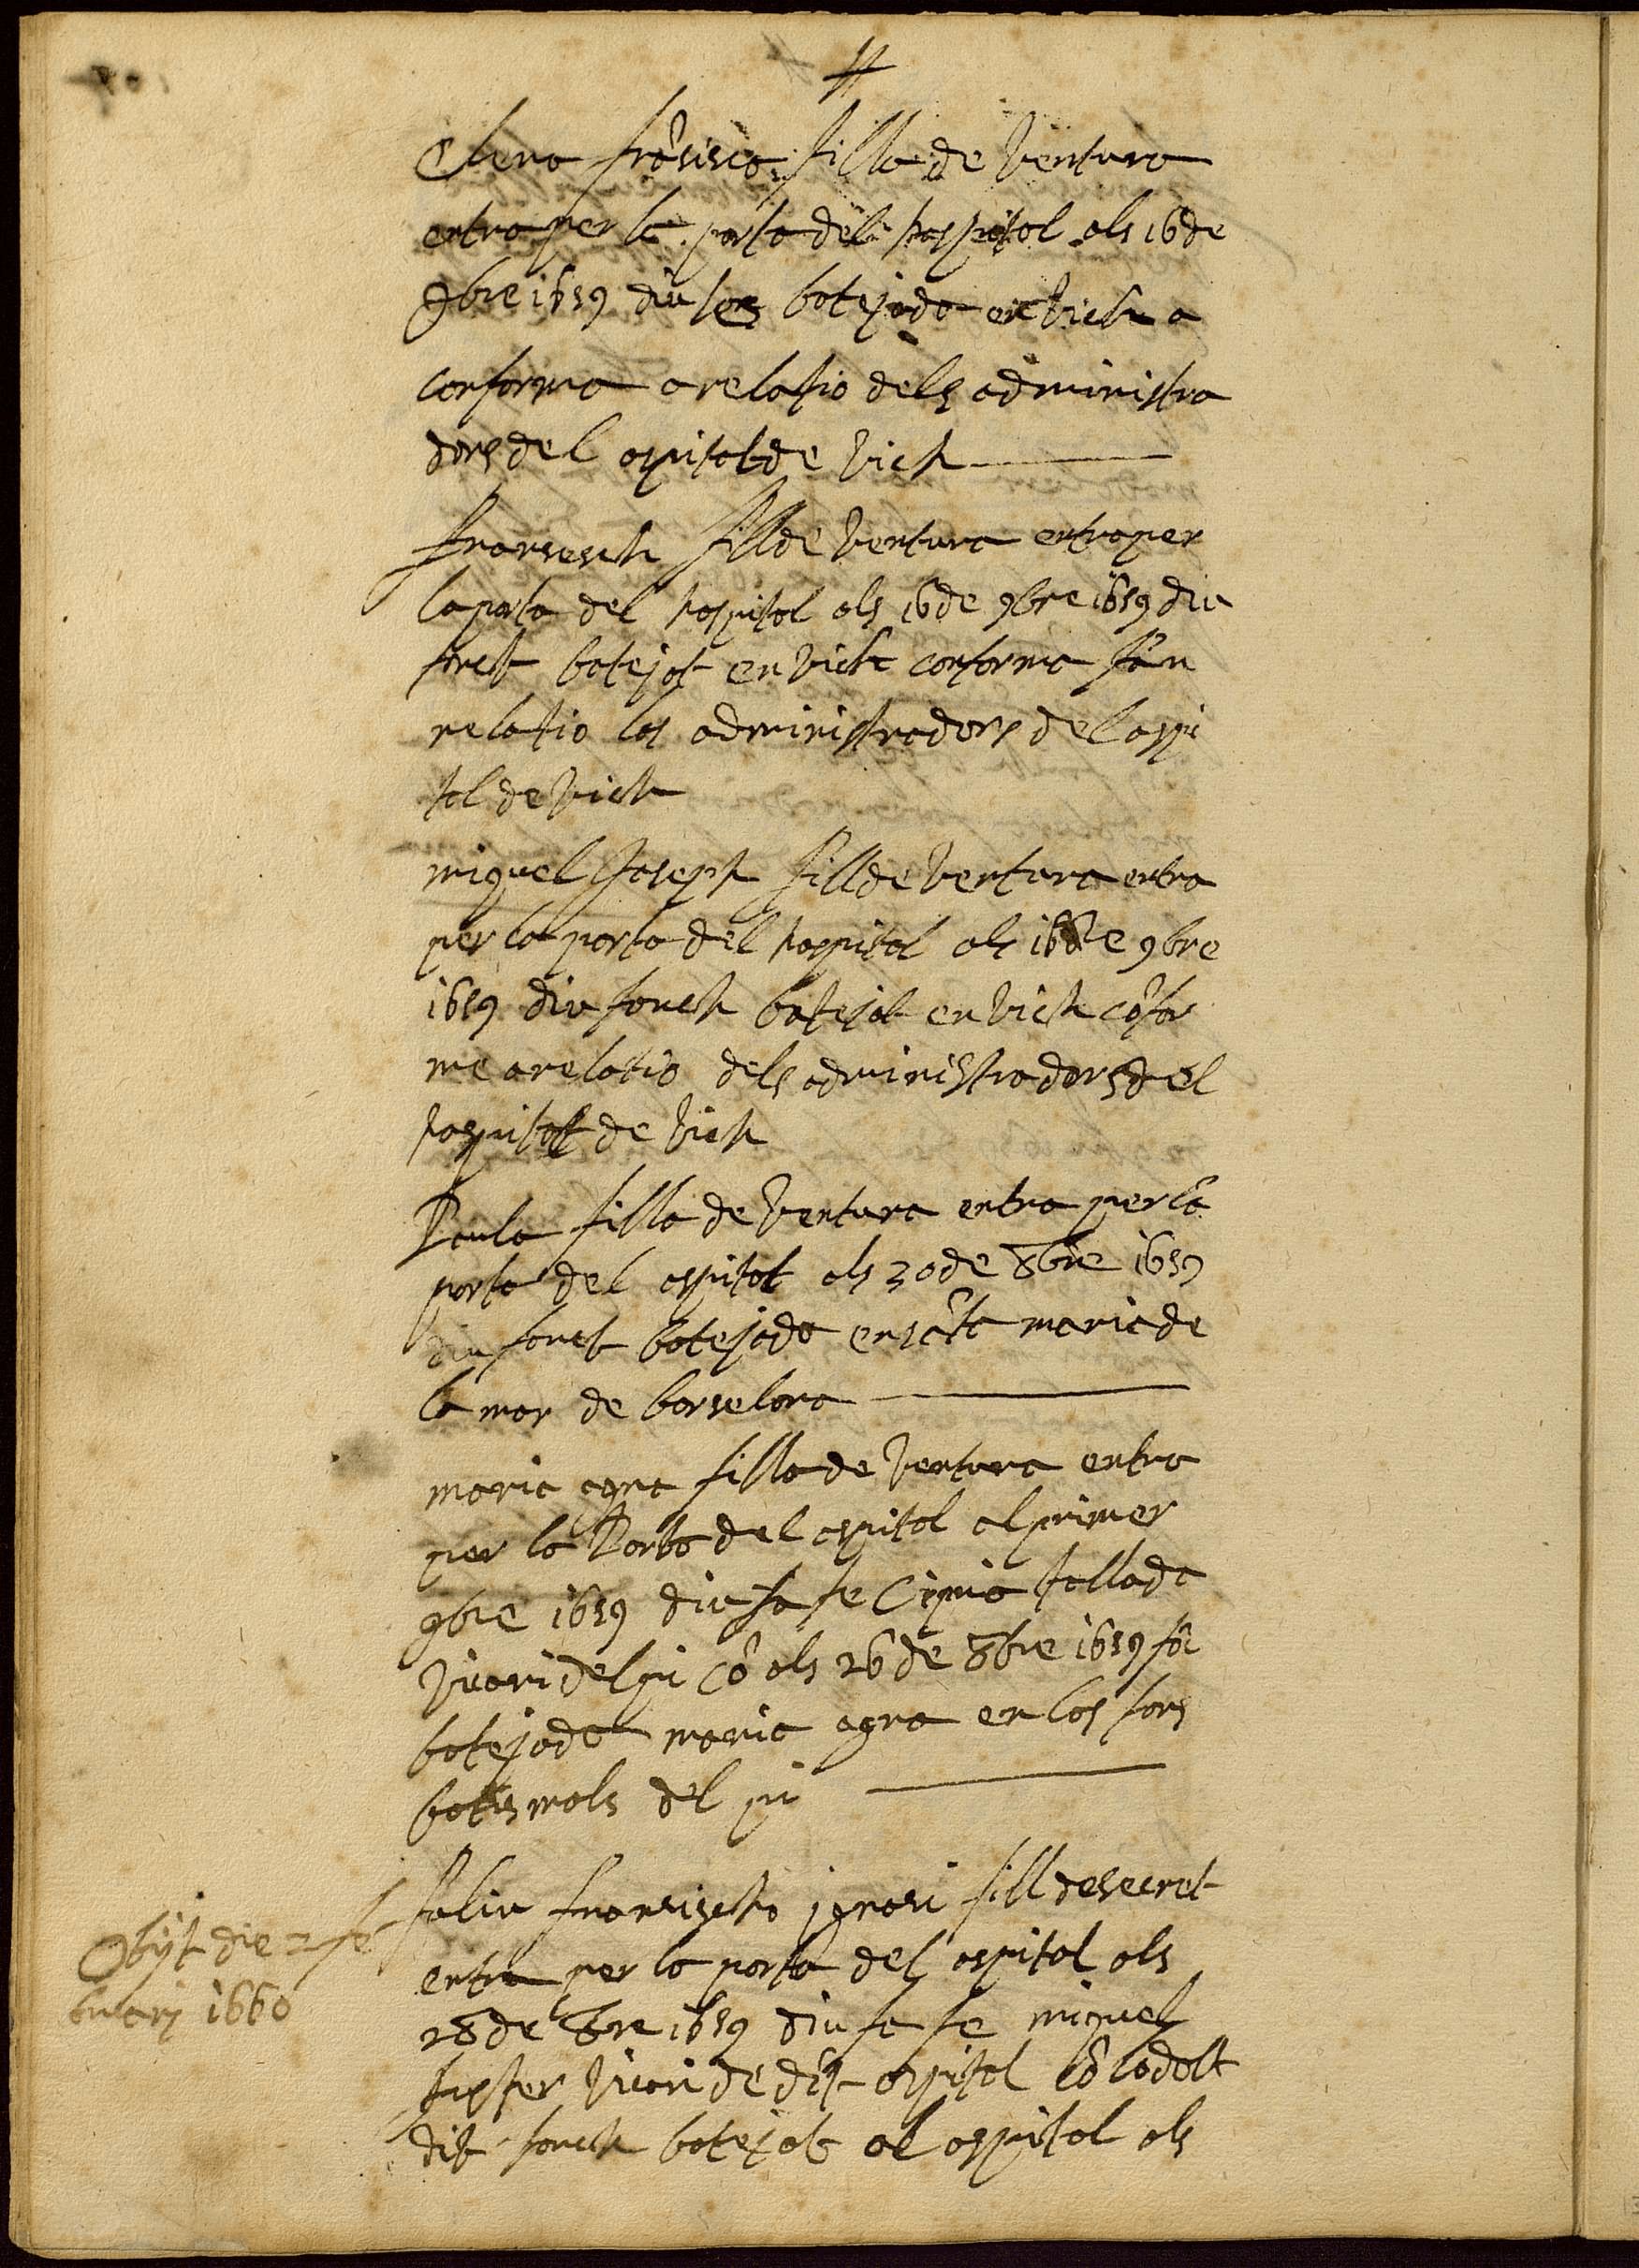 Elena frâsisca filla de Ventura
entra per la porta del hospital als 16 de
9bre 1659 diu fon batejada en Vich a
conforma a relatio dels administra
dors del ospital de Vich
fransesch fill de Ventura entra per
la porta del hospital als 16 de 9bre 1659 diu
fonch batejat en Vich conforma fan
relatio los administradors del aspi
tal de Vich
miquel Joseph fill de Ventura entra
per la porta del hospital als 16 de 9bre
1659 diu fonch batejat en Vich côfor
me a relatio dels administradors del
hospital de Vich
Paula filla de Ventura entra per la
porta del ospital als 30 de 8bre 1659
diu fonch batejada en sâta maria de
la mar de barselona
maria agna filla de Ventura entra
per la Porta del ospital al primer
9bre 1659 diu fa fe Cipria tallada
Vicari del pi cô als 26 de 8bre 1659 fôc
batejada maria agna en las fons
batismals del pi
faliu fransischo ignasi fill de secret
entra per la porta del ospital als
28 de 8bre 1659 diu fa fe miquel
fuster Vicari de dit ospital cô lo dalt
dit fonch batejat al ospital als
Obijt die 2 fe
bruarij 1660